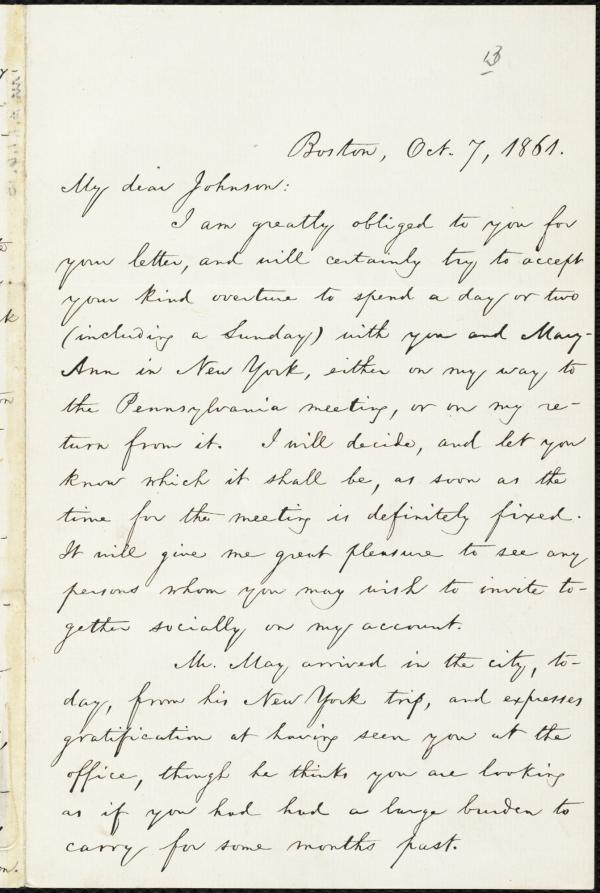 Boston, Oct. 7, 1861.
My dear Johnson:
I am greatly obliged to you for
your letter, and will certainly try to accept
your kind overture to spend a day or two
(including a Sunday) with you and Mary-
Ann in New York, either on my way to
the Pennsylvania meeting, or on my re-
turn from it. I will decide, and let you
know which it shall be, as soon as the
time for the meeting is definitely fixed.
It will give me great pleasure to see any
persons whom you may wish to invite to-
gether socially on my account.
Mr. May arrived in the city, to-
day, from his New York trip, and expresses
gratification at having seen you at the
office, though he thinks you are looking
as if you had had a large burden to
carry for some months past.